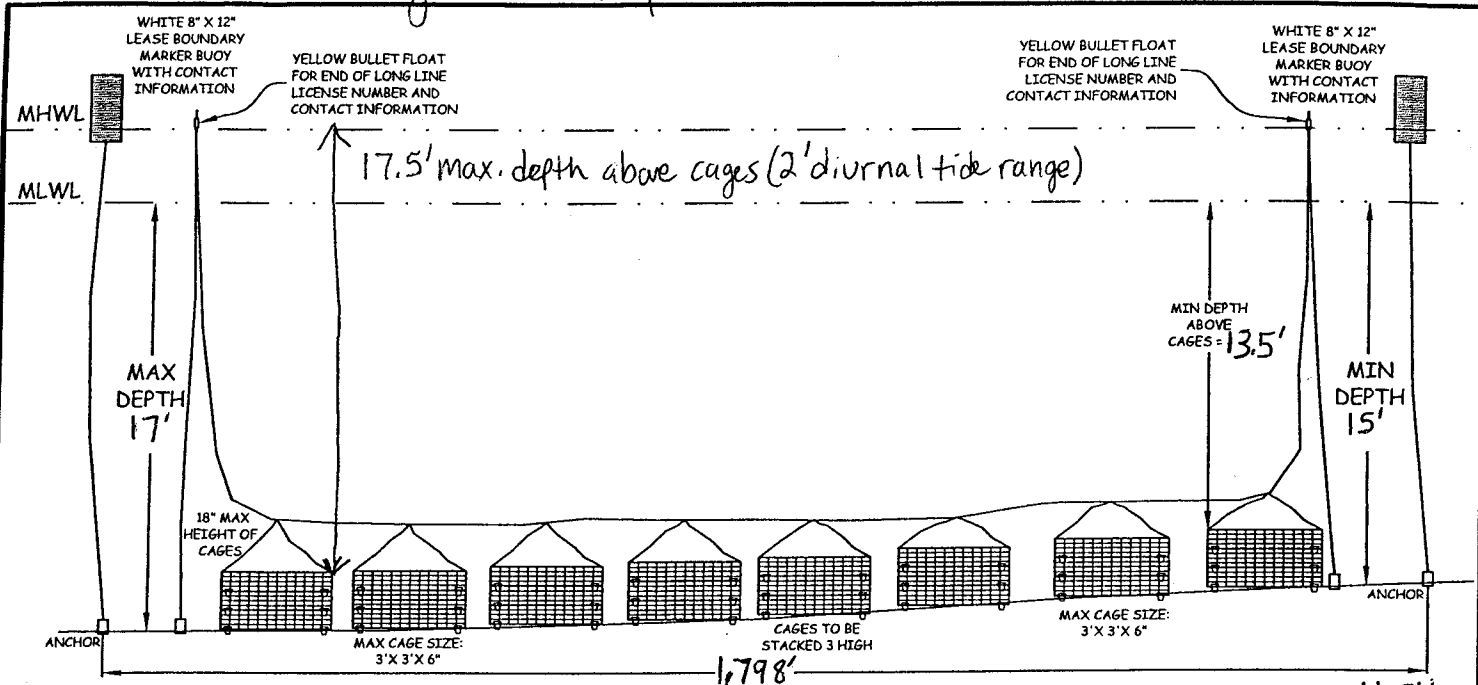 WHITE 8" X 12"
LEASE BOUNDARY
MARKER BUOY
WITH CONTACT
INFORMATION
YELLOW BULLET FLOAT
FOR END OF LONG LINE
LICENSE NUMBER AND
CONTACT INFORMATION
YELLOW BULLET FLOAT
FOR END OF LONG LINE
LICENSE NUMBER AND
CONTACT INFORMATION
WHITE 8" X 12"
LEASE BOUNDARY
MARKER BUOY
WITH CONTACT
INFORMATION
MHWL
17.5' max. depth above cages (2' diurnal tide range)
MLWL
MAX
DEPTH
17'
MIN DEPTH
ABOVE
CAGES = 13.5'
MIN
DEPTH
15'
18" MAX
HEIGHT OF
CAGES
ANCHOR
MAX CAGE SIZE:
3'X 3'X 6"
CAGES TO BE
STACKED 3 HIGH
MAX CAGE SIZE:
3'X 3'X 6"
ANCHOR
1,798'